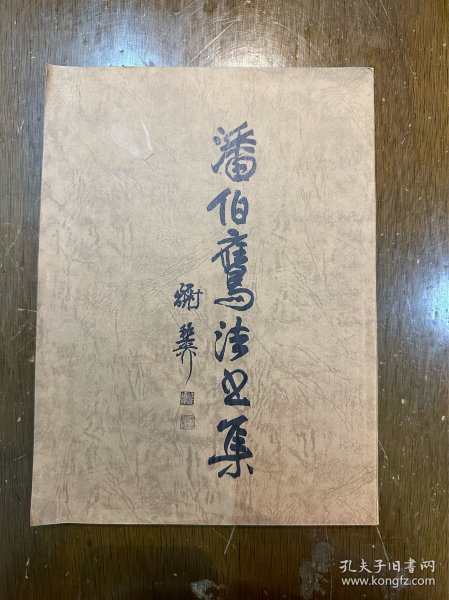 潘伯鹰法书集
谢稚
孔夫子旧书网
www.kongfz.com